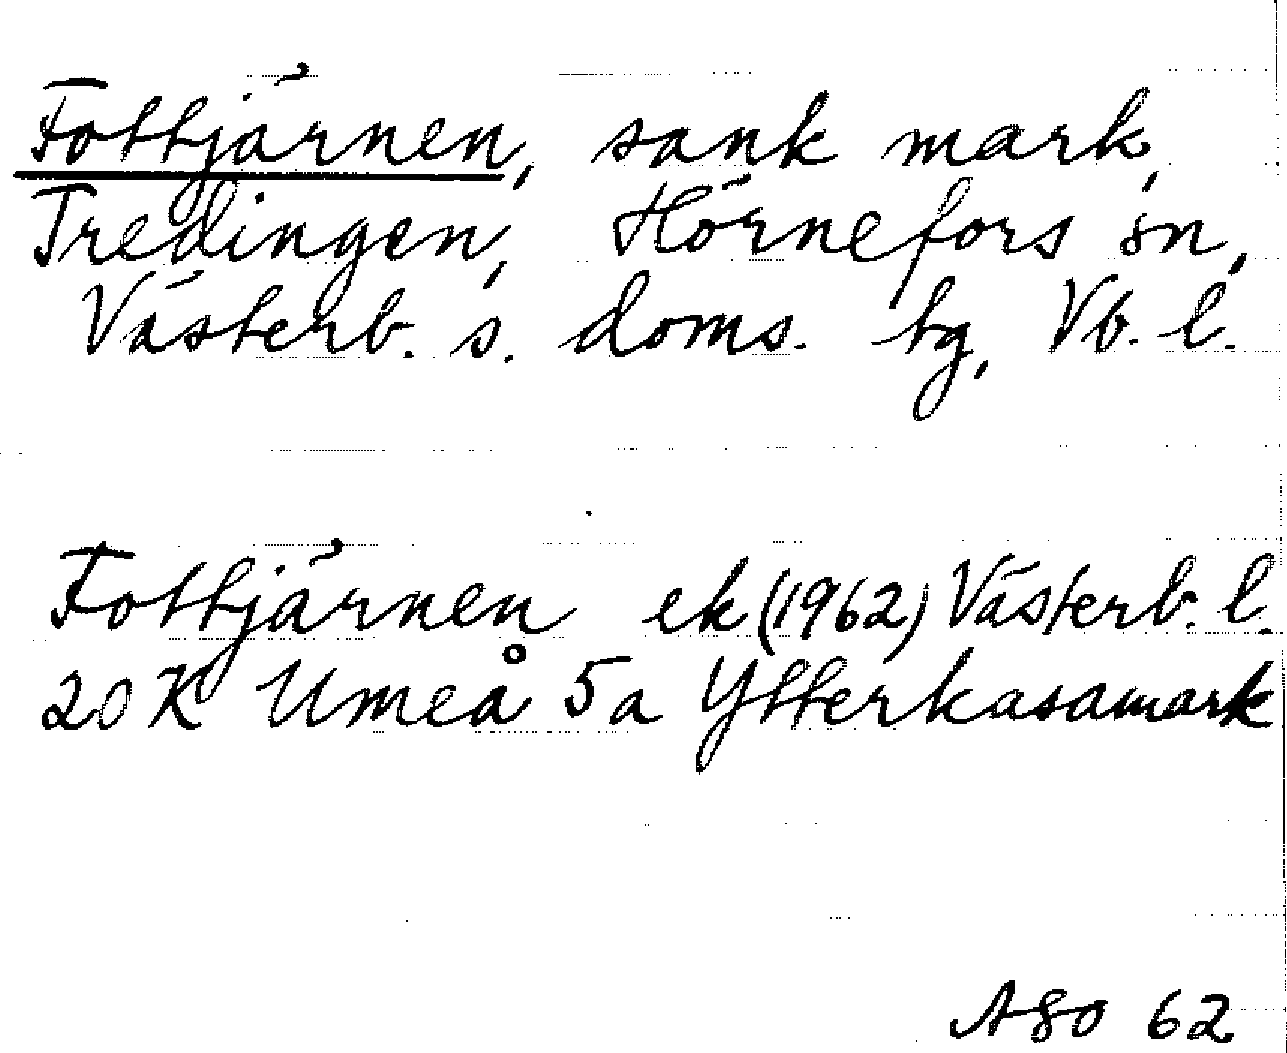 Fottjärnen, sank mark,
Tredingen, Hörnefors sn,
Västerb. s. doms. tg, Vb. l.
Fottjärnen ek (1962) Västerb. l.
20 K Umeå 5a Ytterkasamark
ASO 62